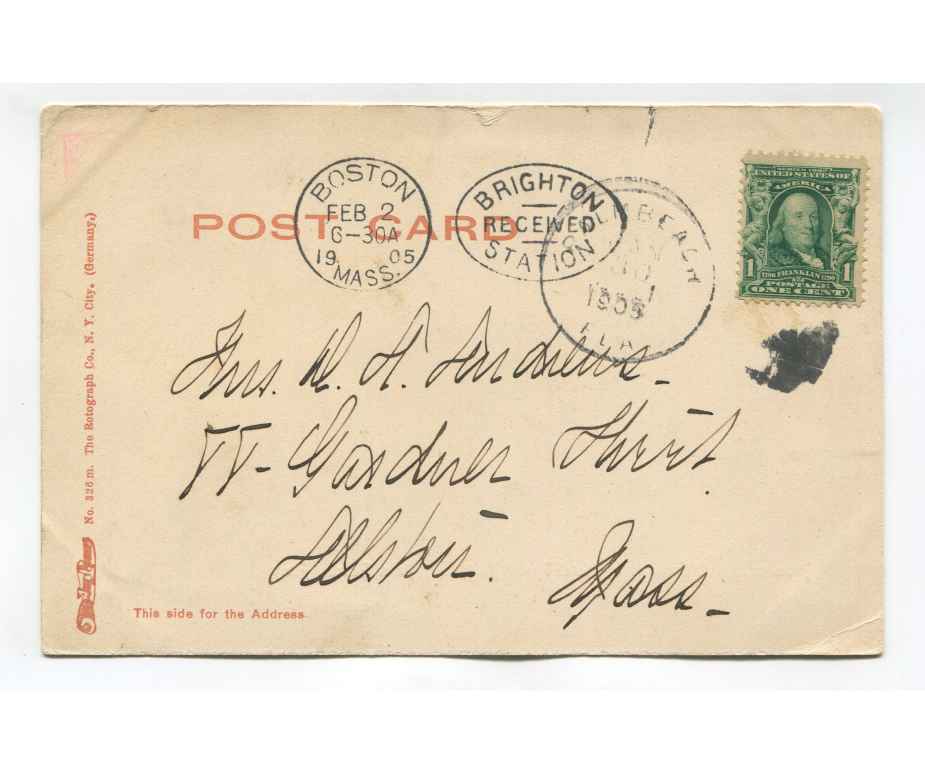 BOSTON
FEB 2
6-30A
19 05
MASS.
BRIGHTON
RECEIVED
STATION
BEACH
1905
FLA
SERIES 1902
UNITED STATES OF
AMERICA
1 FRANKLIN 1
POSTAGE
ONE CENT
POST CARD
Mrs. A. Andrews
Gardner Street
Allston. Mass
This side for the Address.
No. 326 m. The Rotograph Co., N. Y. City. (Germany.)